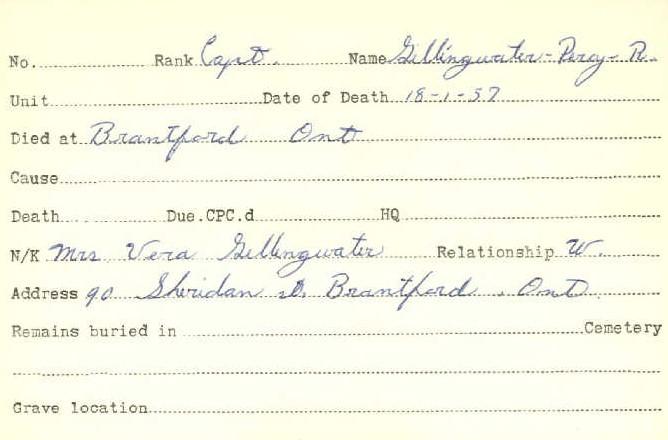 No. Rank Capt. Name Gillingwater - Percy - R.
Unit Date of Death 18-1-57
Died at Brantford Ont
Cause
Death Due.CPC.d HQ
N/K Mrs Vera Gillingwater Relationship W.
Address 90 Sheridan St. Brantford. Ont.
Remains buried in Cemetery
Grave location